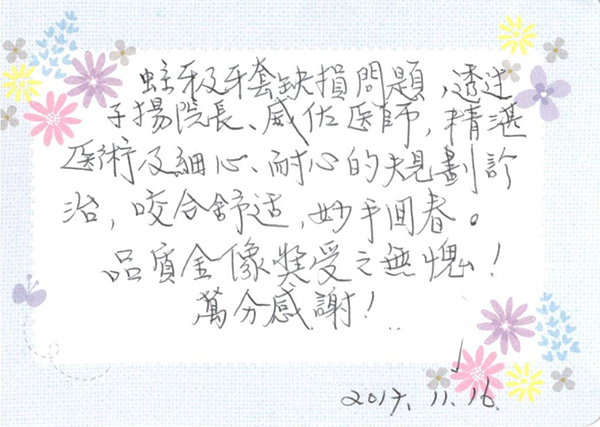 蛀牙及牙套缺損問題，透过
子揚院長、威佐医師，精湛
医術及細心、耐心的規劃診
治，咬合舒适，妙手回春。
品质金像獎受之無愧！
萬分感謝！
2017.11.16.